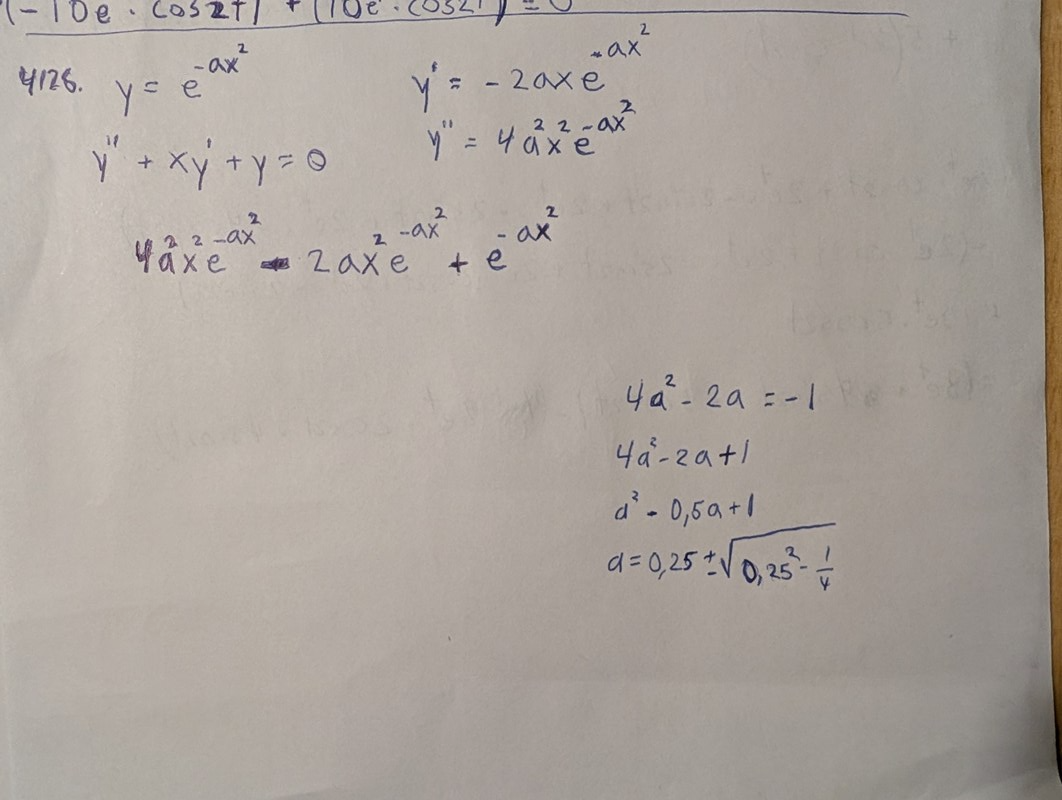 (-10e · cos2t) + (10e · cos2t) = 0
4126. y = e^{-ax^2}
y' = -2axe^{-ax^2}
y'' + xy' + y = 0
y'' = 4a^2x^2e^{-ax^2}
4a^2x^2e^{-ax^2} - 2ax^2e^{-ax^2} + e^{-ax^2}
4a^2 - 2a = -1
4a^2 - 2a + 1
a^2 - 0,5a + 1
a = 0,25 ± √(0,25^2 - 1/4)